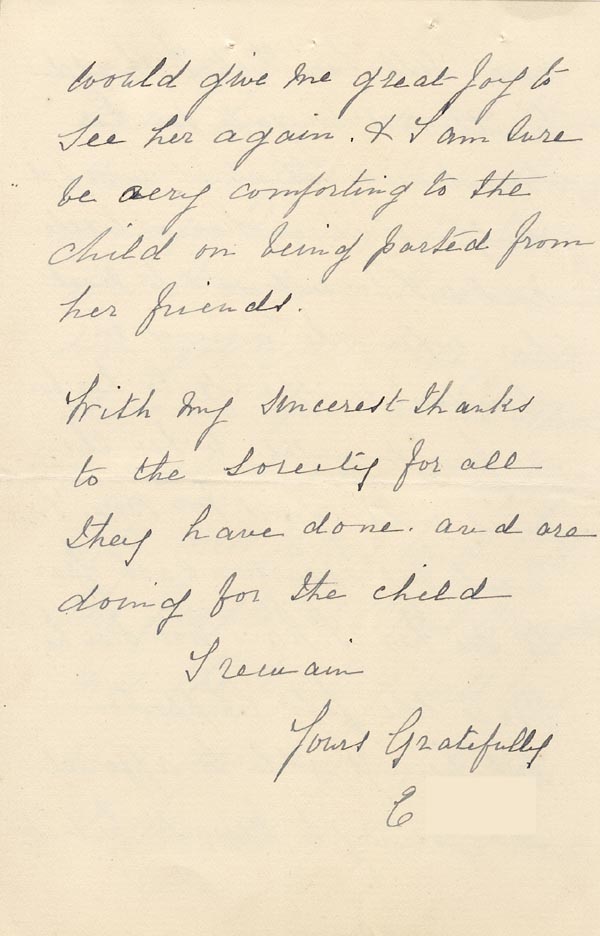 would give me great Joy to
See her again. & I am sure
be very comforting to the
child on being parted from
her friends.
With my sincerest thanks
to the Soreity for all
they have done. and are
doing for the child
I remain
Yours Gratefully
E